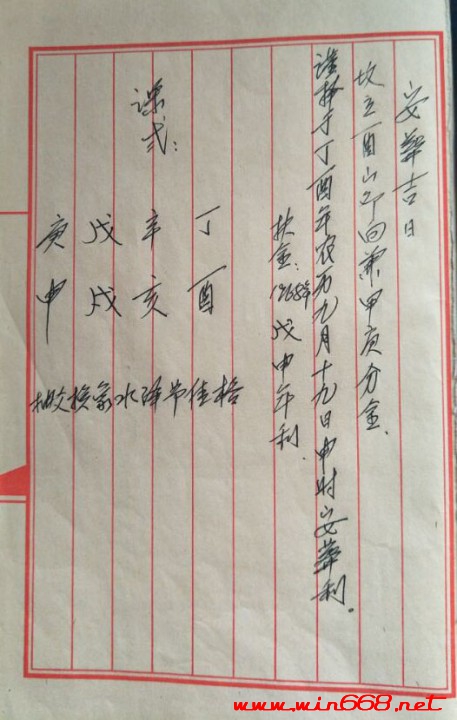 安葬吉日
坟立酉山卯向兼甲庚分金.
谨择于丁酉年农历九月十九日申时安葬利。
扶金:1968年戊申年利.
课式:
丁 辛 戊 庚
酉 亥 戌 申
换象水降节佳格
www.win668.net